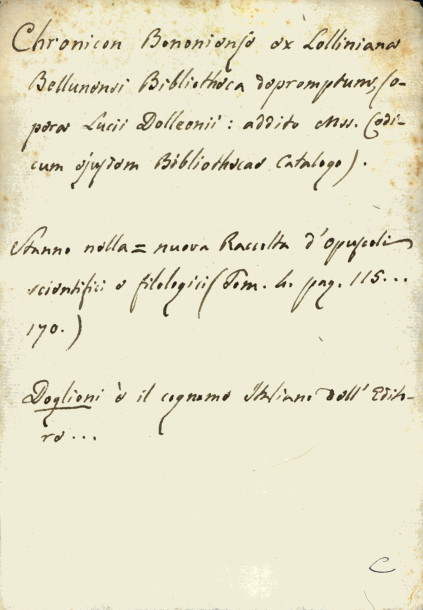 Chronicon Bononiense ex Lolliniana
Bellunensi Bibliotheca depromptum, (o-
pera Lucii Dolleonii: addito Mss. Codi-
cum ejusdem Bibliothecae Catalogo).
Stanno nella = nuova Raccolta d'opuscoli
scientifici e filologici (Tom. 4. pag. 115...
170.)
Doglioni è il cognome Italiano dell' Edito-
re...
C